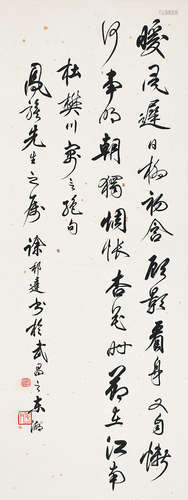 暖風遲日柳初含顧影看身又自慚
何事明朝獨惆悵杏花時節在江南
杜樊川寓言絕句
鳳先生之屬 徐邦達書於武昌之東湖